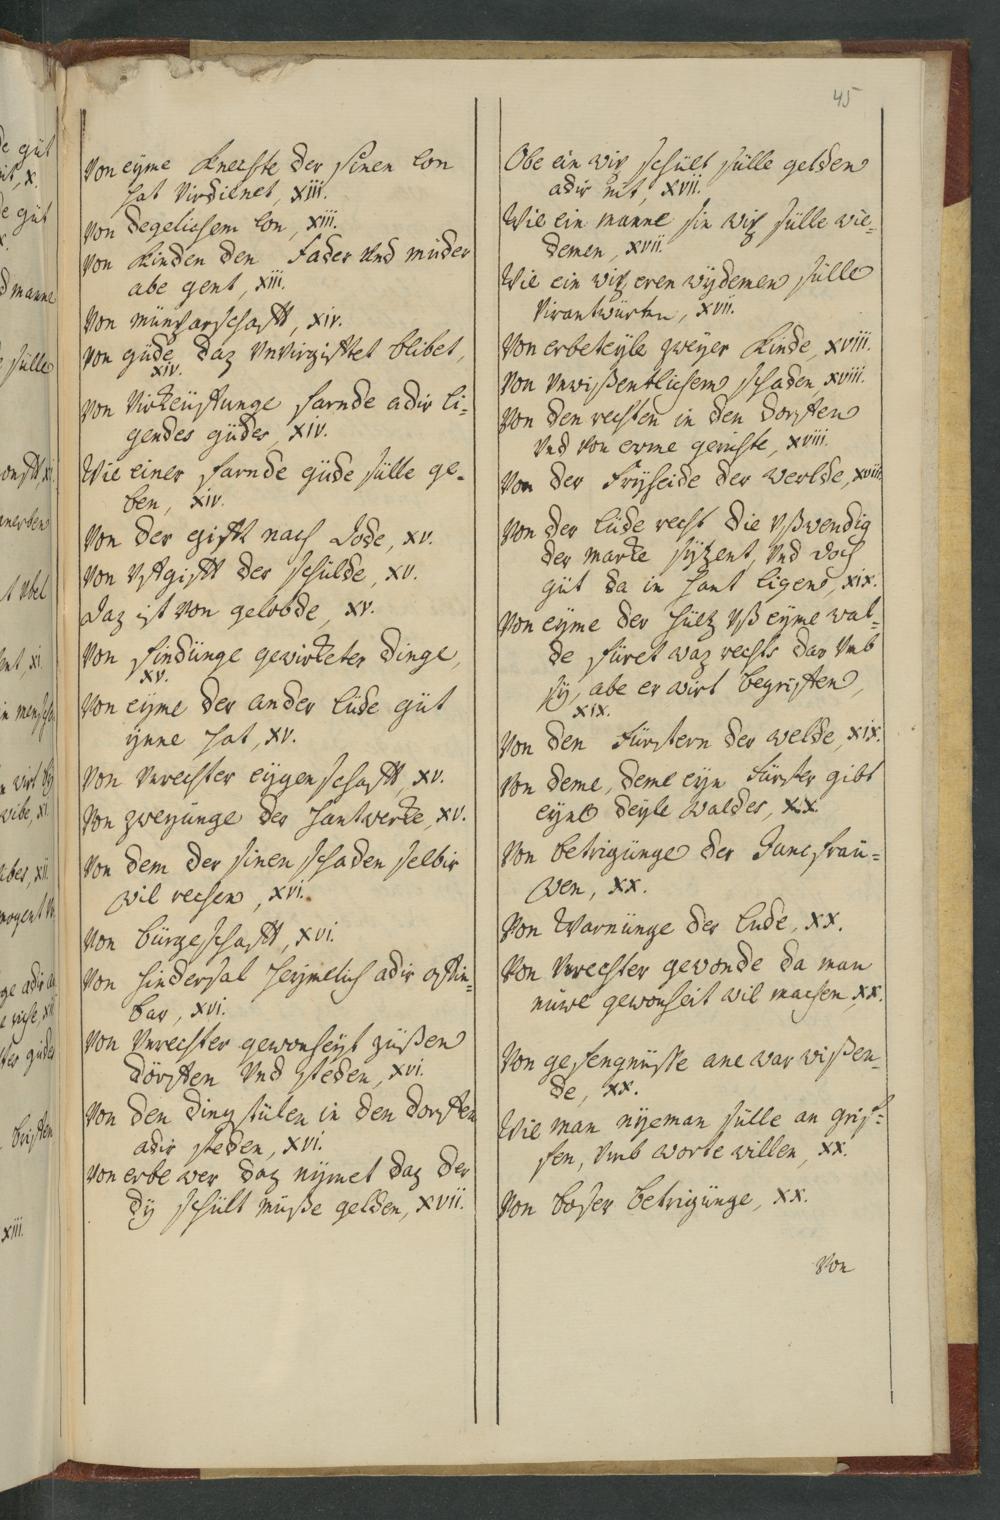 45
Von eyme Knechte der sinen lon
hat virdienet, XIII.
Von degelichem lon, XIII.
Von Kinden den Fader vnd muder
abe gent, XIII.
Von munparschafft, XIV.
Von gude, daz vnvirgifftet blibet,
XIV.
Von virkeuffunge farnde adir li=
gendes gudes, XIV.
Wie einer farnde gude sulle ge=
ben, XIV.
Von der gifft nach Dode, XV.
Von vffgifft der schulde, XV.
Daz ist von gelobde, XV.
Von findunge gewirketer dinge,
XV.
Von eyme der ander lude gut
ynne hat, XV.
Von vnrechter eygenschafft, XV.
Von zweyunge der hantwerke, XV.
Von dem der sinen schaden selbir
wil rechen, XVI.
Von burgeschafft, XVI.
Von hindersal heymelich adir offin=
bar, XVI.
Von vnrechter gewonheyt zußen
dörffen vnd steden, XVI.
Von den dingstulen in den dorffen
adir steden, XVI.
Von erbe wer daz nymet daz der
dy schult muße gelden, XVII.
Obe ein wip schult sulle gelden
adir nit, XVII.
Wie ein manne sin wip sulle wie=
demen, XVII.
Wie ein wip eren wydemen sulle
virantwurten, XVII.
Von erbeteyle zweyer Kinde, XVIII.
Von vnwißentlichem schaden XVIII.
Von den rechten in den dorffen
vnd von erme gerichte, XVIII.
Von der Fryheide der werlde, XVIII.
Von der lude recht die vßwendig
der marke sytzent, vnd doch
gut da in hant ligen, XIX.
Von eyme der hultz vß eyme wal=
de furet waz rechts dar vmb
sy, abe er wirt begriffen,
XIX.
Von den Fürstern der welde, XIX.
Von deme, deme eyn Fürster gibt
eyne deyle waldes, XX.
Von betrigunge der Juncfrau=
wen, XX.
Von Warnunge der lude, XX.
Von vnrechter gewonde da man
nuwe gewonheit wil machen, XX.
Von gefengnusse ane war wißen=
de, XX.
Wie man nyeman sulle an grif=
fen, vmb worte willen, XX.
Von boser betrigunge, XX.
Von